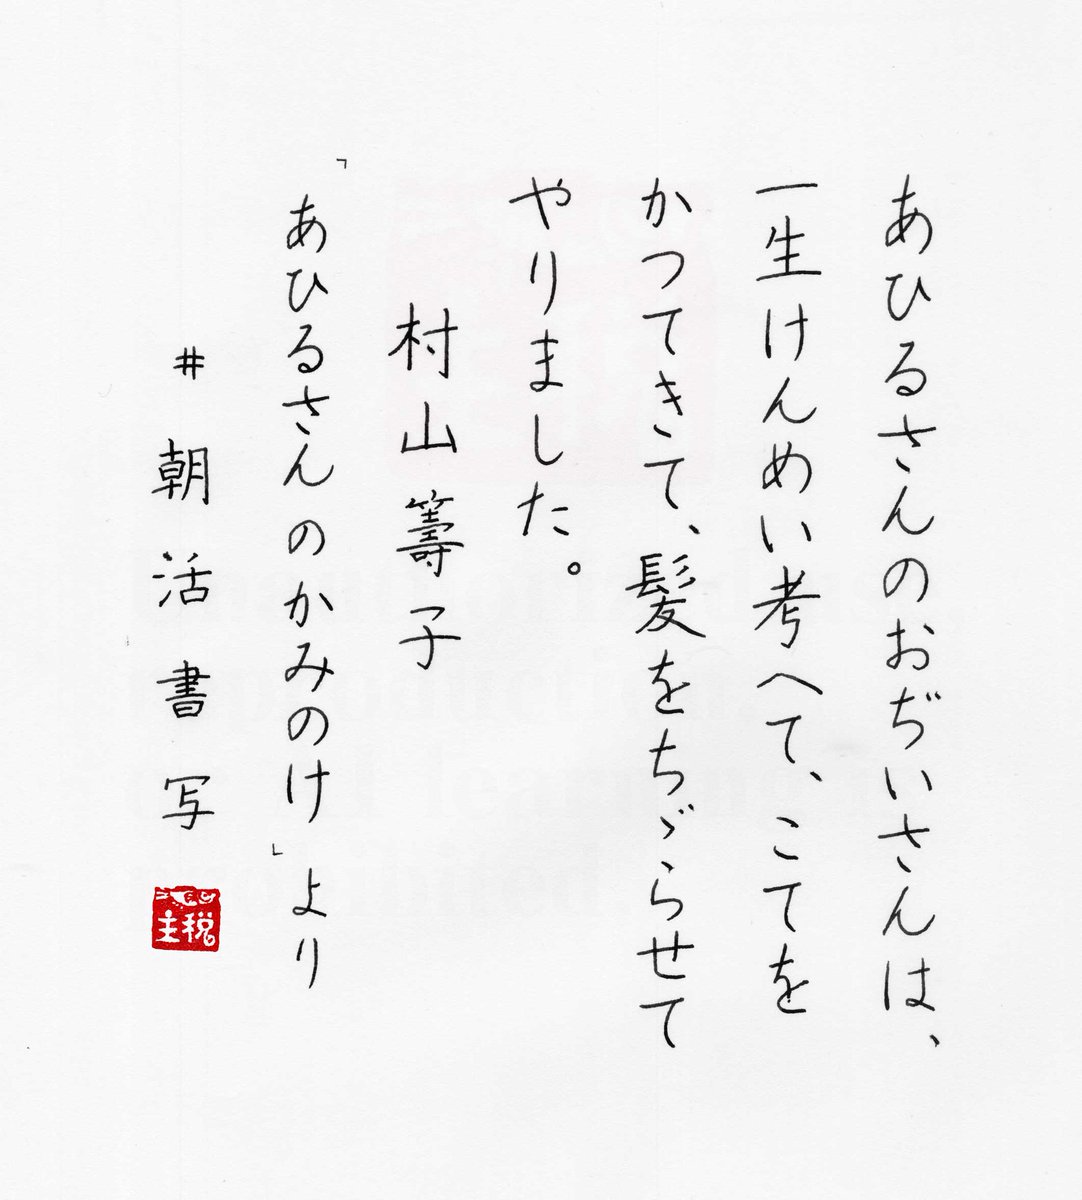 あひるさんのおぢいさんは、
一生けんめい考へて、こてを
かつてきて、髪をちゞらせて
やりました。
村山籌子
「あひるさんのかみのけ」より
#朝活書写
主税